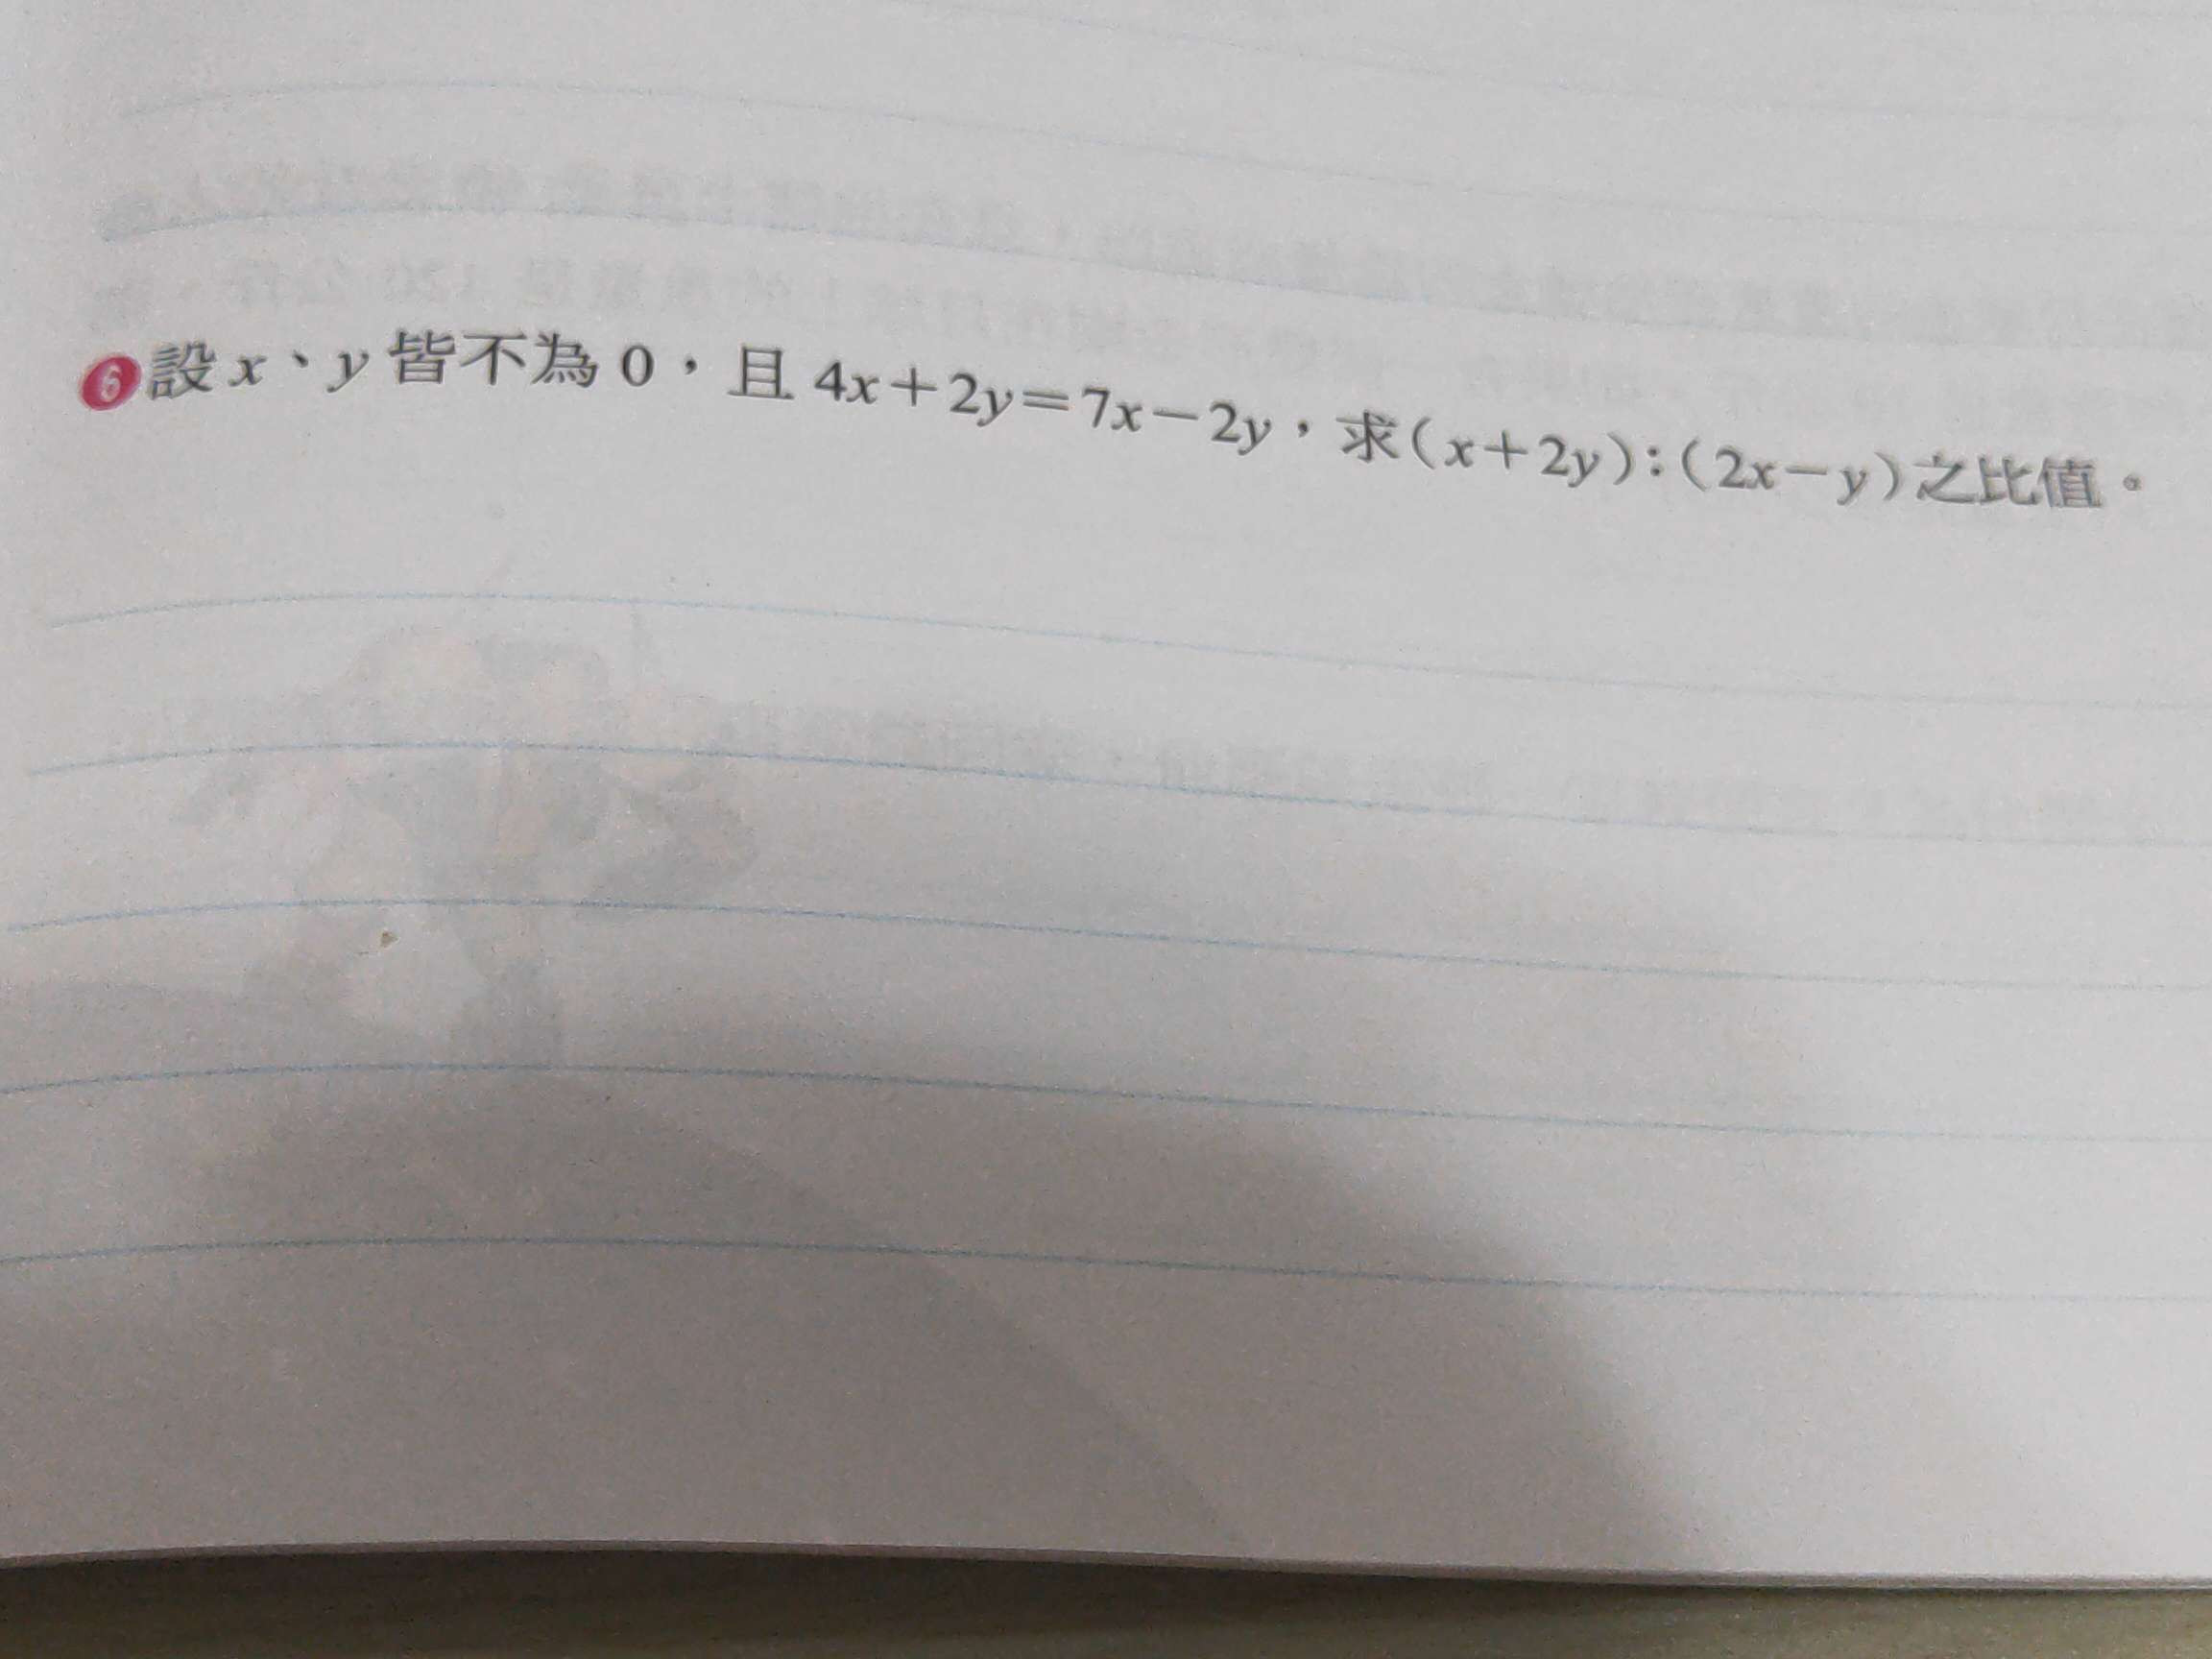 6 設 x、y 皆不為 0，且 4x＋2y＝7x－2y，求(x＋2y)：(2x－y)之比值。